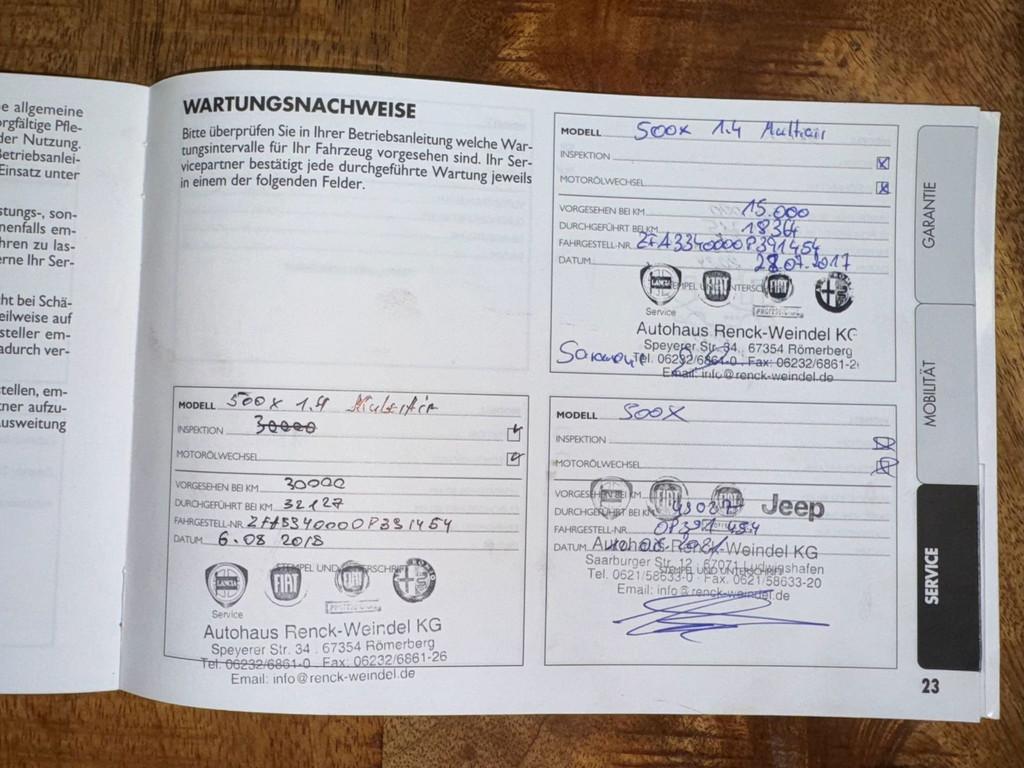 e allgemeine
orgfältige Pfle-
der Nutzung.
Betriebsanlei-
Einsatz unter
stungs-, son-
nenfalls em-
hren zu las-
erne Ihr Ser-
cht bei Schä-
eilweise auf
steller em-
adurch ver-
stellen, em-
tner aufzu-
Ausweitung
WARTUNGSNACHWEISE
Bitte überprüfen Sie in Ihrer Betriebsanleitung welche War-
tungsintervalle für Ihr Fahrzeug vorgesehen sind. Ihr Ser-
vicepartner bestätigt jede durchgeführte Wartung jeweils
in einem der folgenden Felder.
MODELL 500X 1.4 Multiair
INSPEKTION
MOTORÖLWECHSEL
VORGESEHEN BEI KM 15.000
DURCHGEFÜHRT BEI KM 18364
FAHRGESTELL-NR. ZFA3340000P391454
DATUM 28.07.2017
STEMPEL UND UNTERSCHRIFT
LANCIA FIAT FIAT PROFESSIONAL
Service
Autohaus Renck-Weindel KG
Speyerer Str. 34 . 67354 Römerberg
Tel. 06232/6861-0 . Fax: 06232/6861-2
Email: info@renck-weindel.de
MODELL 500X 1.4
INSPEKTION 30000
MOTORÖLWECHSEL
VORGESEHEN BEI KM 30000
DURCHGEFÜHRT BEI KM 32127
FAHRGESTELL-NR. ZFA3340000P391454
DATUM 6.08 2018
STEMPEL UND UNTERSCHRIFT
LANCIA FIAT FIAT PROFESSIONAL
Service
Autohaus Renck-Weindel KG
Speyerer Str. 34 . 67354 Römerberg
Tel. 06232/6861-0 . Fax: 06232/6861-26
Email: info@renck-weindel.de
MODELL 500X
INSPEKTION
MOTORÖLWECHSEL
VORGESEHEN BEI KM
Jeep
DURCHGEFÜHRT BEI KM
FAHRGESTELL-NR. 0P391 454
DATUM
Autohaus Renck-Weindel KG
Saarburger Str. 12 . 67071 Ludwigshafen
STEMPEL UND UNTERSCHRIFT
Tel. 0621/58633-0 . Fax: 0621/58633-20
Email: info@renck-weindel.de
GARANTIE
MOBILITÄT
SERVICE
23